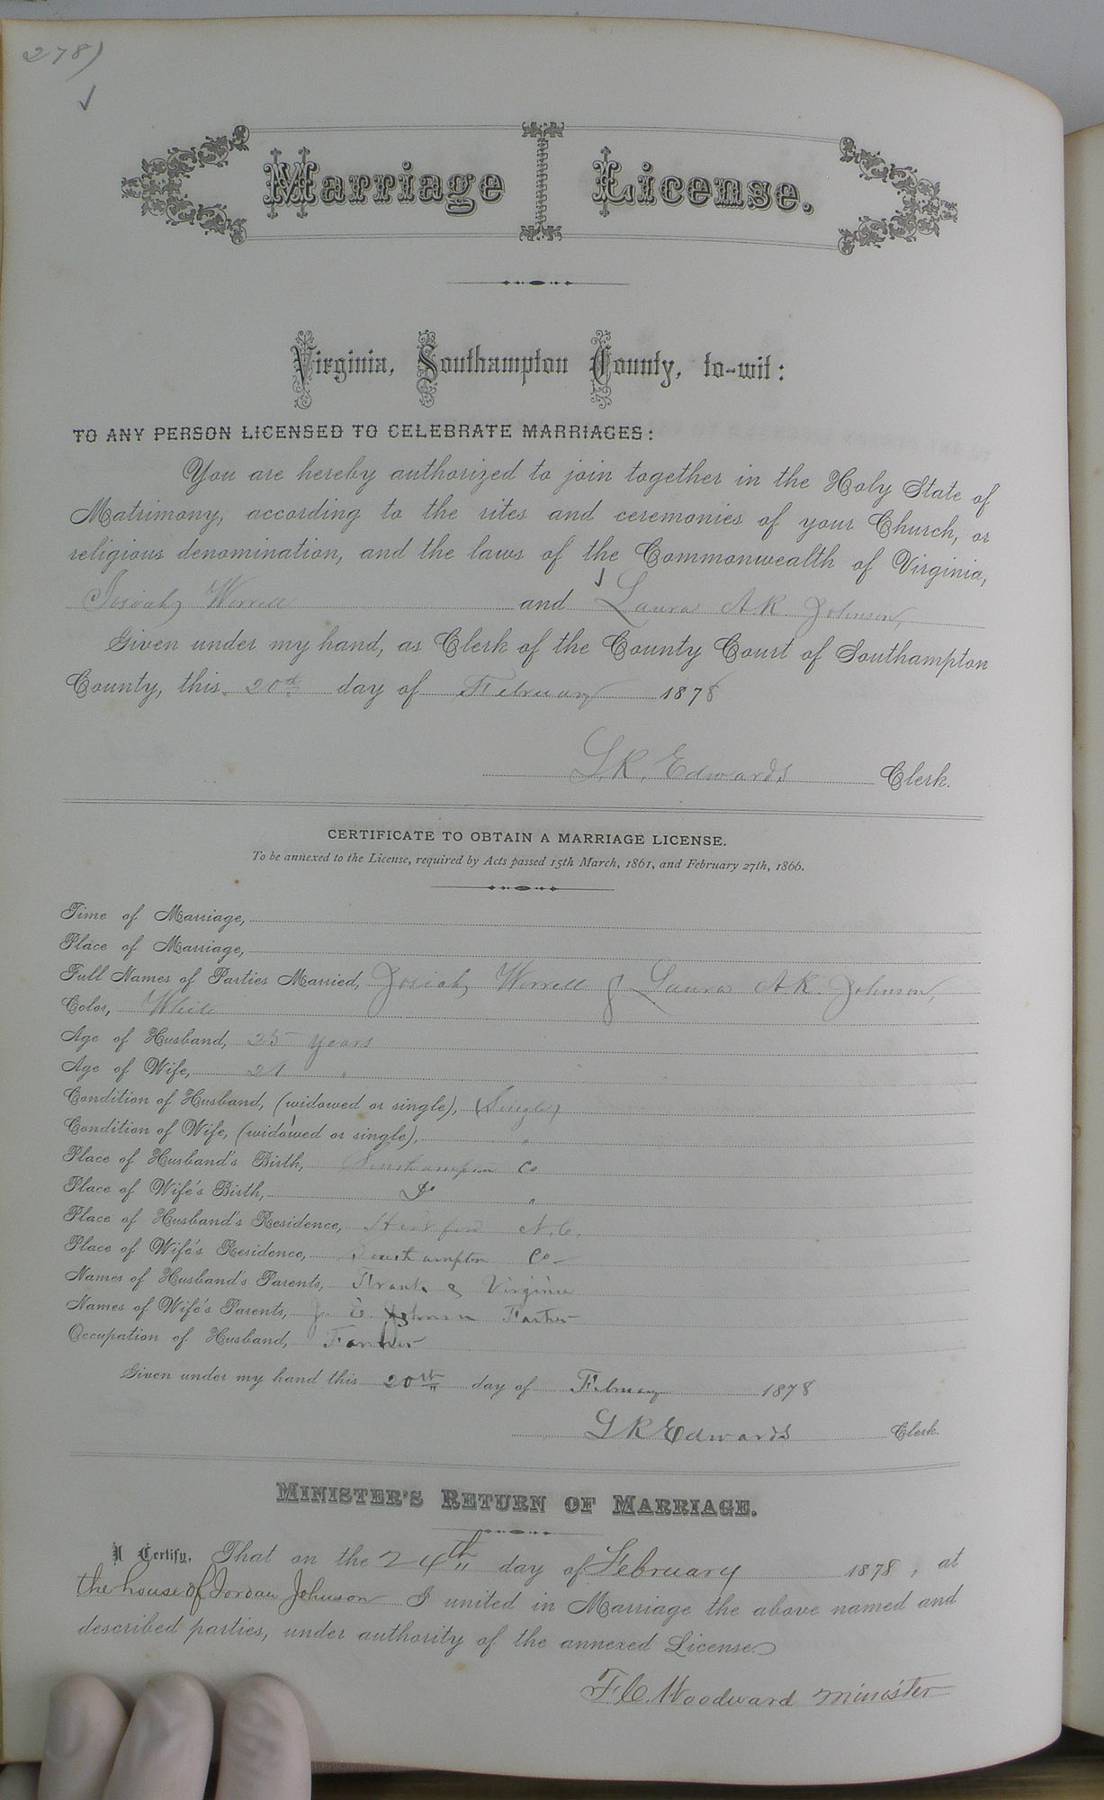 278)
Marriage License.
Virginia, Southampton County, to-wit:
TO ANY PERSON LICENSED TO CELEBRATE MARRIAGES:
You are hereby authorized to join together in the Holy State of
Matrimony, according to the rites and ceremonies of your Church, or
religious denomination, and the laws of the Commonwealth of Virginia,
Josiah Worrell and Laura A.R. Johnson,
Given under my hand, as Clerk of the County Court of Southampton
County, this 20th day of February 1878
L.R. Edwards Clerk.
CERTIFICATE TO OBTAIN A MARRIAGE LICENSE.
To be annexed to the License, required by Acts passed 15th March, 1861, and February 27th, 1866.
Time of Marriage,
Place of Marriage,
Full Names of Parties Married, Josiah Worrell & Laura A.R. Johnson,
Color, White
Age of Husband, 25 years
Age of Wife, 21 "
Condition of Husband, (widowed or single), Single
Condition of Wife, (widowed or single), "
Place of Husband's Birth, Southampton Co
Place of Wife's Birth, Do "
Place of Husband's Residence, Hertford N.C.
Place of Wife's Residence, Southampton Co
Names of Husband's Parents, Frank & Virginia
Names of Wife's Parents, E. Johnson Father
Occupation of Husband, Farmer
Given under my hand this 20th day of February 1878
L R Edwards Clerk.
MINISTER'S RETURN OF MARRIAGE.
I Certify, That on the 24th day of February 1878, at
the house of Jordan Johnson I united in Marriage the above named and
described parties, under authority of the annexed License.
F.C. Woodward minister